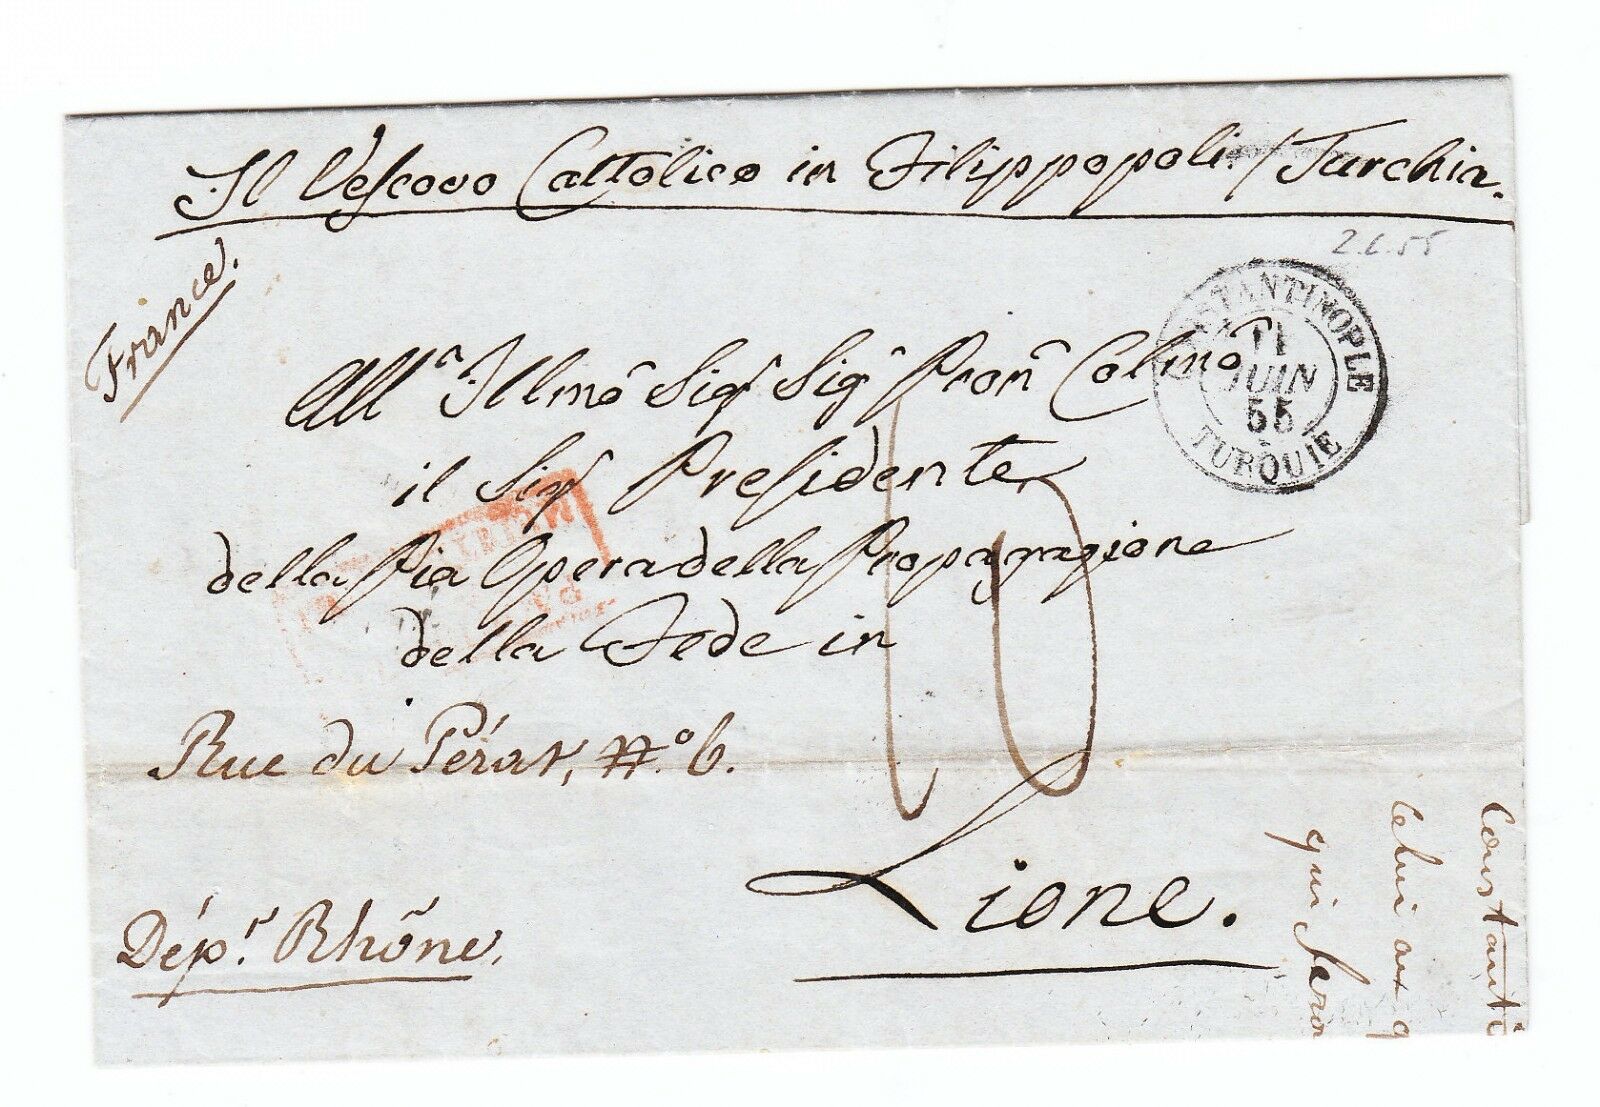 Il Vescovo Cattolico in Filippopoli / Turchia.
France.
2.6.55
CONSTANTINOPLE
11
JUIN
55
TURQUIE
All.ª Illmo Sigr Sigr Pron Colmo
il Sigr Presidente
della Pia Opera della Propagazione
della Fede in
Rue du Pérat, N.º 6.
Lione.
Dép.t Rhône.
Constanti
Celui
qui sera